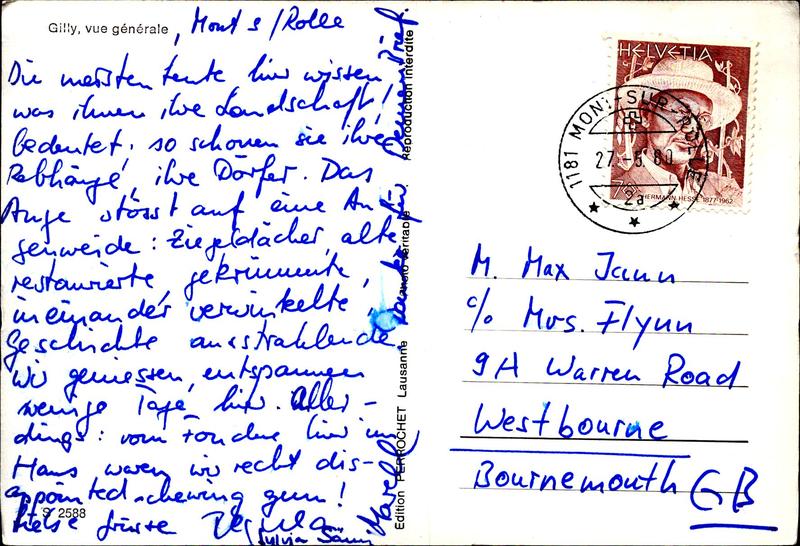 Gilly, vue générale, Mont s/Rolle
Die meisten Leute hier wissen,
was ihnen ihre Landschaft
bedeutet, so schonen sie ihre
Rebhänge, ihre Dörfer. Das
Auge stösst auf eine Au-
genweide: Ziegeldächer, alte
restaurierte, gekrümmte,
ineinander verwinkelte,
Geschichte ausstrahlende.
Wir geniessen, entspannen
wenige Tage hier. Aller-
dings: vom Fondue hier im
Haus waren wir recht dis-
appointed - chewing gum!
liebe Grüsse Regula
Sylvia
S 2588
Marcel
Danke für Deinen Brief.
Edition PERROCHET Lausanne
Photo véritable
Reproduction interdite
HELVETIA
HERMANN HESSE 1877-1962
1181 MONT-SUR-ROLLE
27.-5.80
2a
M. Max Jann
c/o Mrs. Flynn
9A Warren Road
Westbourne
Bournemouth GB